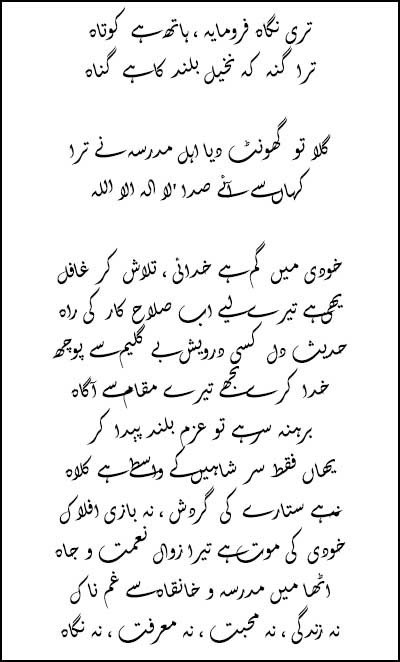 تری نگاہ فرومایہ ، ہاتھ ہے کوتاہ
ترا گنہ کہ نخیل بلند کا ہے گناہ
گلا تو گھونٹ دیا اہل مدرسہ نے ترا
کہاں سے آئے صدا 'لا الہ الا اللہ
خودی میں گم ہے خدائی ، تلاش کر غافل
یہی ہے تیرے لیے اب صلاح کار کی راہ
حدیث دل کسی درویش بے گلیم سے پوچھ
خدا کرے تجھے تیرے مقام سے آگاہ
برہنہ سر ہے تو عزم بلند پیدا کر
یہاں فقط سر شاہیں کے واسطے ہے کلاہ
نہ ہے ستارے کی گردش ، نہ بازی افلاک
خودی کی موت ہے تیرا زوال نعمت و جاہ
اٹھا میں مدرسہ و خانقاہ سے غم ناک
نہ زندگی ، نہ محبت ، نہ معرفت ، نہ نگاہ